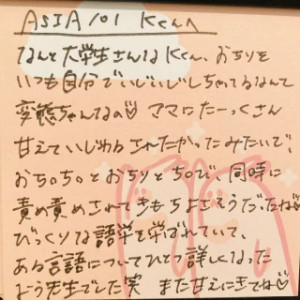 ASIA 101 Kくんへ
なんと大学生さんなKくん、おちりを
いつも自分でいじいじしちゃってるなんて
変態ちゃんなの♡ ママにたーっくさん
甘えていじめられたかったみたいで、
おち○ち○とおちりとち○び、同時に
責め責めされてきもちよさそうだったね♡
びっくりな語学を学ばれていて、
ある言語についてひとつ詳しくなった
よう先生でした笑 また甘えにきてね♡